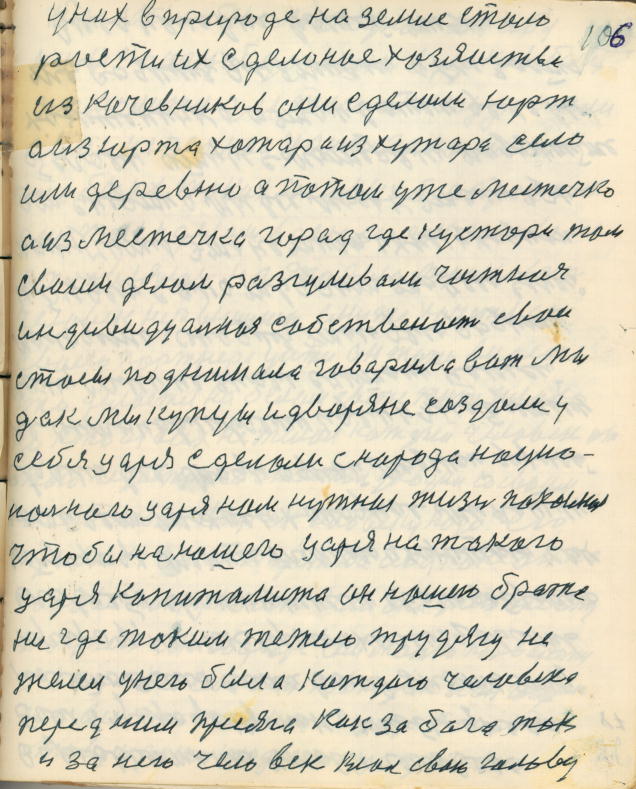 106
у них в природе на земле стало
рости их сделоное хозяиства
из кочевников они сделоли юрт
а из юрта хотар а из хутара село
или деревню а потом уже местечко
а из местечка горад где кустори там
своим делом разгуливали частная
индевидуалная собственост свои
стоеш поднимала говарила вот мы
дак мы купцы и дворяне создали у
себя царя сделоли с народа нацио-
налного царя нам нужна жизн
чтобы на нашего царя на такого
царя копиталиста он нашего брата
ни где таким тежело трудягу не
желел у него была каждого человека
перед ним присяга как за бага так
и за него человек клал свою галову